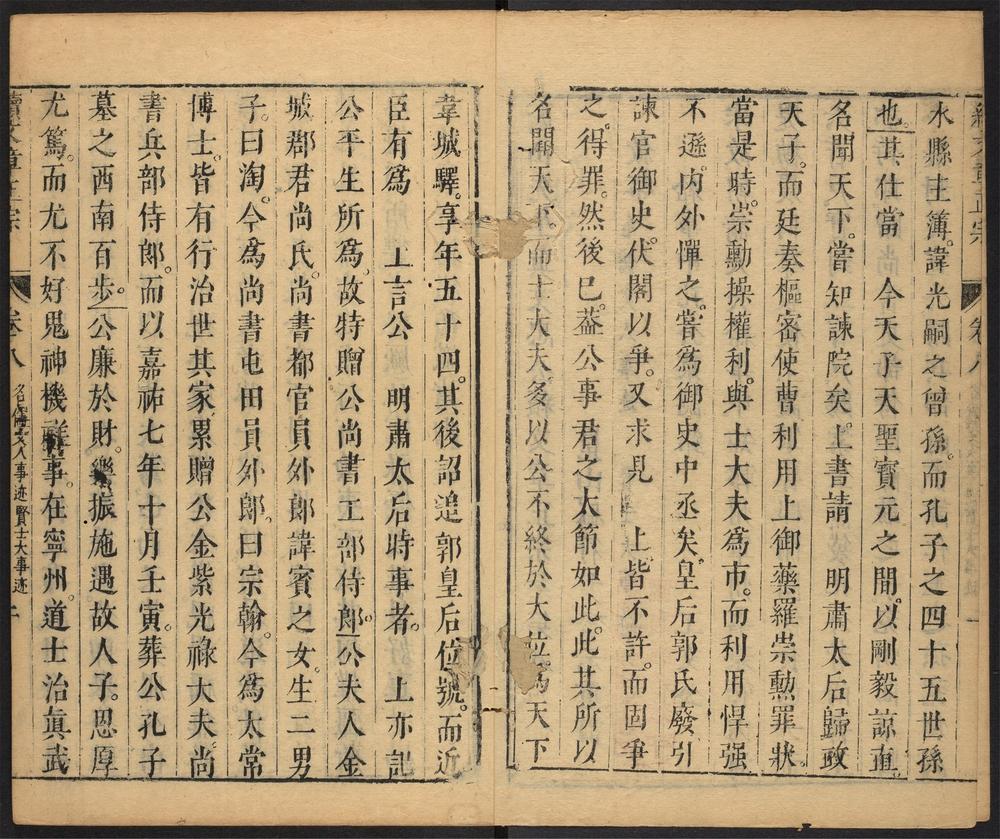 續文章正宗 卷八 一
水縣主簿諱光嗣之曾孫而孔子之四十五世孫
也。其仕當 今天子天聖寶元之間。以剛毅諒直。
名聞天下。嘗知諫院矣。上書請 明肅太后歸政
天子。而廷奏樞密使曹利用上御藥羅崇勲罪狀。
當是時。崇勳操權利。與士大夫爲市。而利用悍强
不遜。内外憚之。嘗爲御史中丞矣。皇后郭氏廢。引
諫官御史伏閤以爭。又求見 上皆不許。而固爭
之。得罪。然後已。葢公事君之大節如此。此其所以
名聞天下。而士大夫多以公不終於大位。爲天下
韋城驛。享年五十四。其後詔追郭皇后位號。而近
臣有爲 上言公 明肅太后時事者。 上亦記
公平生所爲。故特贈公尚書工部侍郎。公夫人金
城郡君尚氏。尚書都官員外郎諱賓之女。生二男
子。曰淘。今爲尚書屯田員外郎。曰宗翰。今爲太常
博士。皆有行治世其家。累贈公金紫光祿大夫。尚
書兵部侍郎。而以嘉祐七年十月壬寅。葬公孔子
墓之西南百步。公廉於財。樂振施遇故人子。恩厚
尤篤。而尤不好鬼神機祥事。在寧州。道士治眞武
續文章正宗 卷八 名儒文人事迹賢士大事迹 二